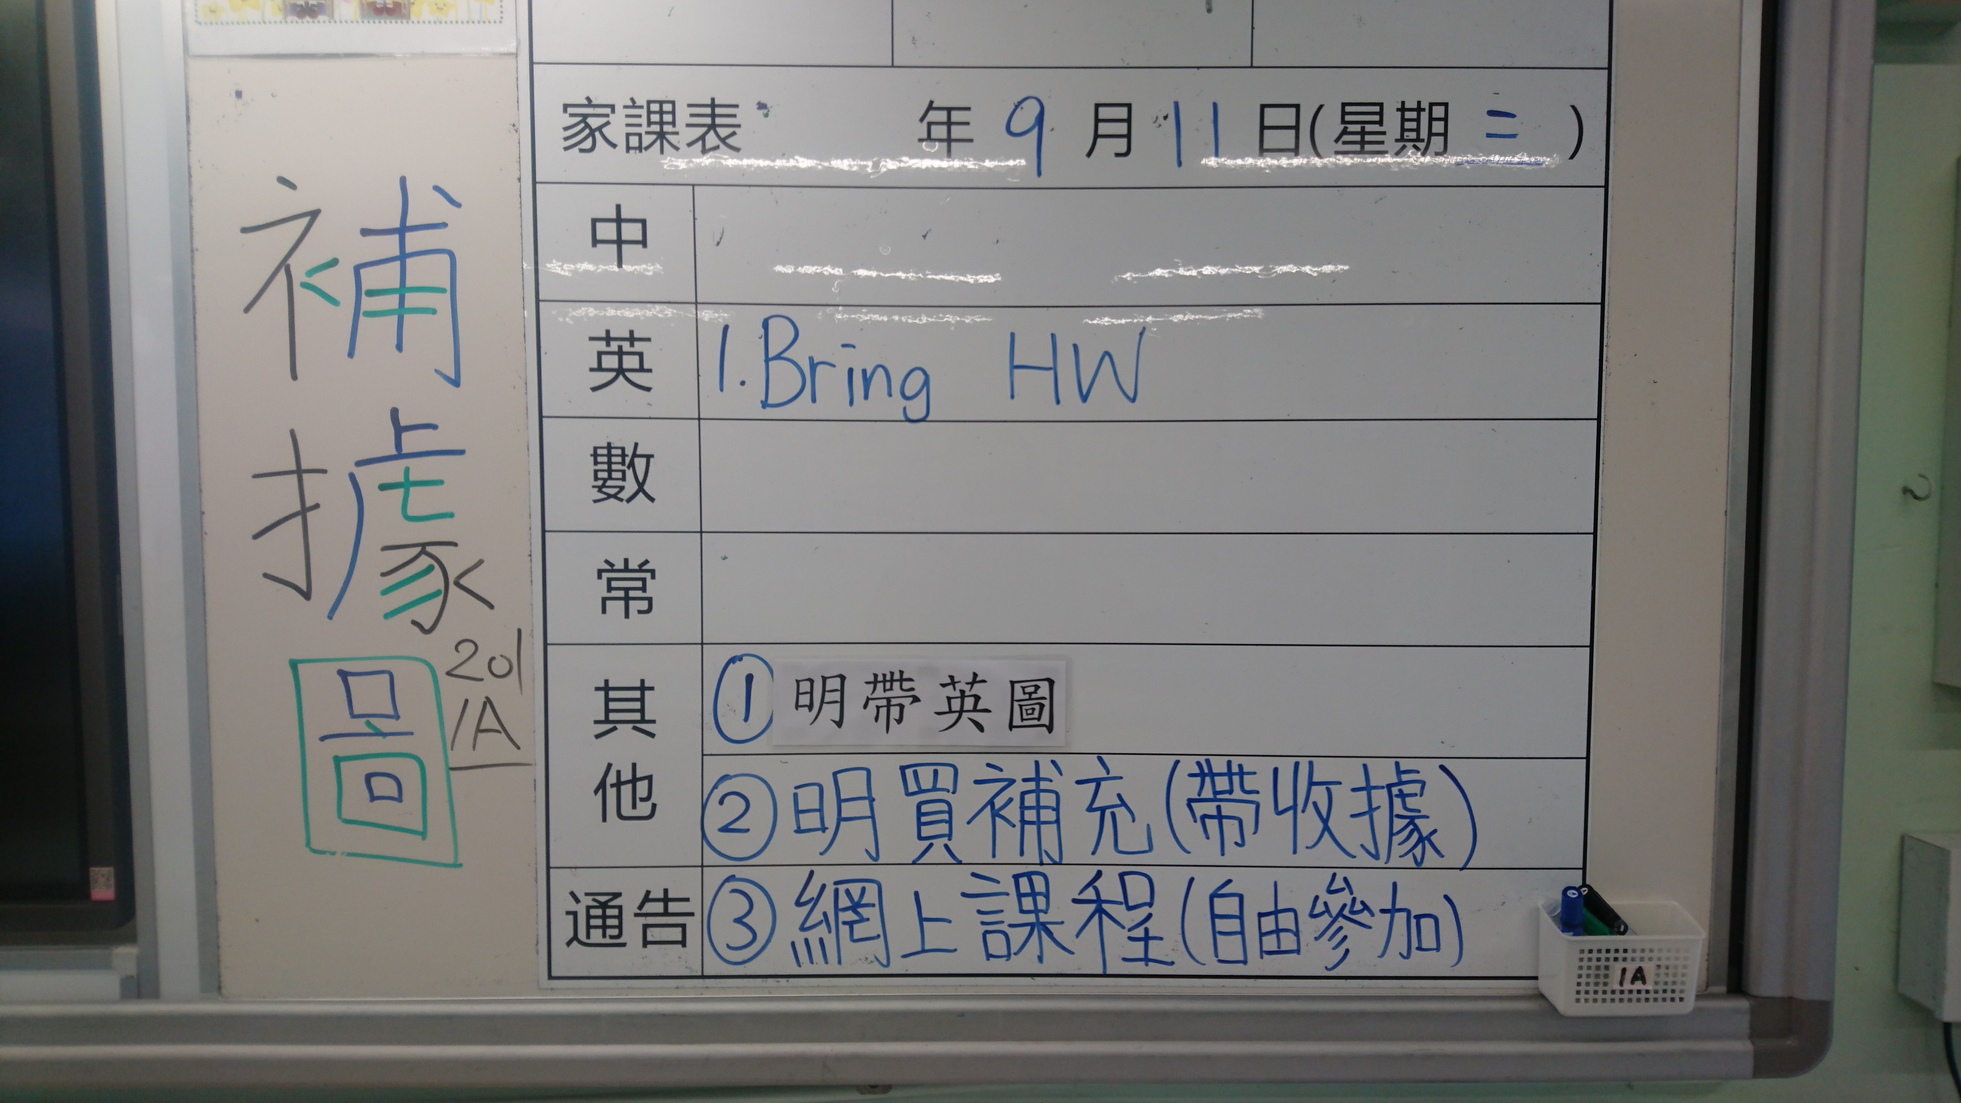 家課表 年 9 月 11 日(星期 二 )
中
英 1. Bring HW
數
常
其他 ① 明帶英圖
② 明買補充(帶收據)
通告 ③ 網上課程(自由參加)
補
據
圖
201
1A
1A